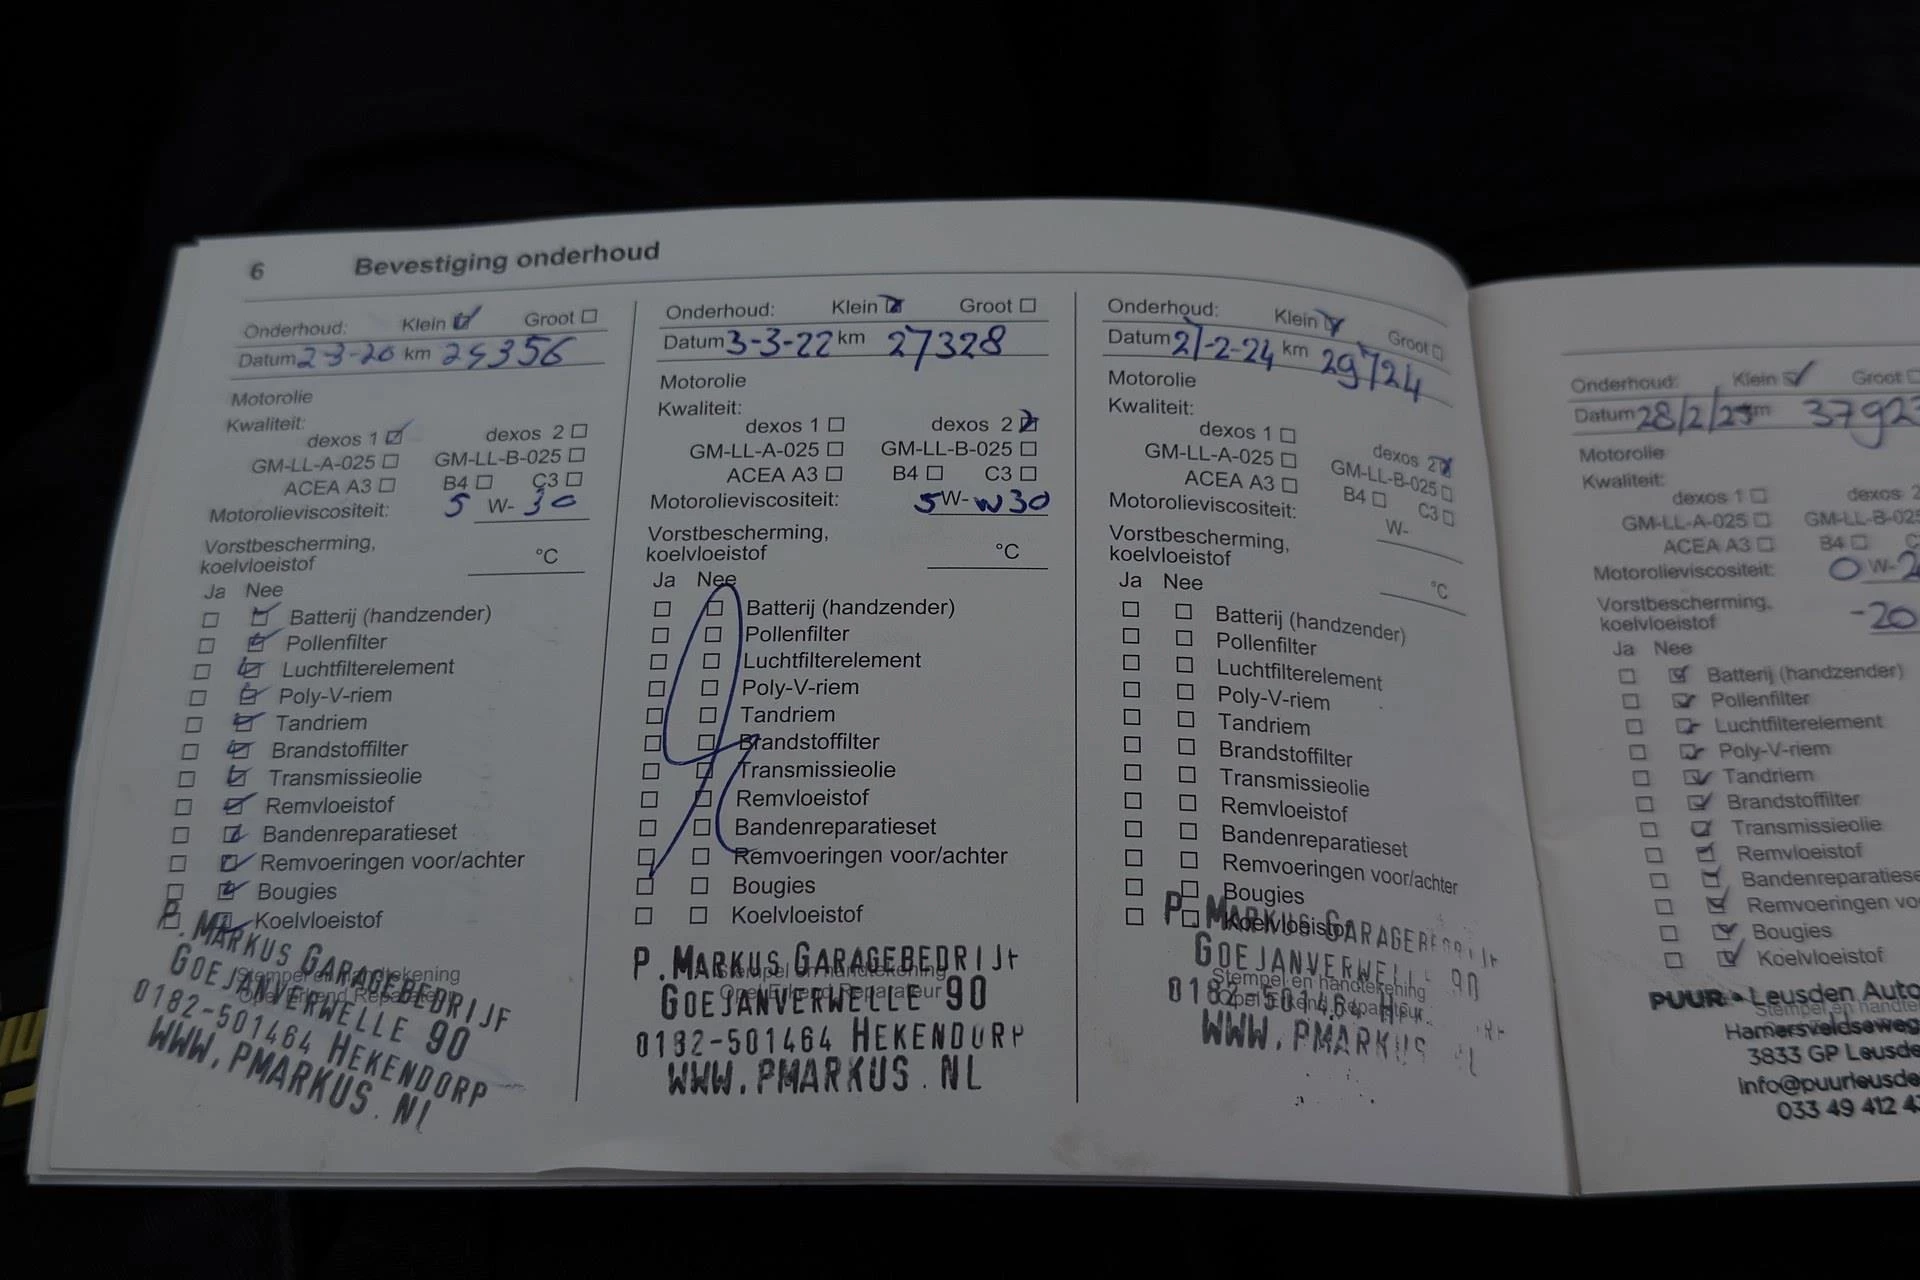 6 Bevestiging onderhoud
Onderhoud: Klein Groot
Datum 2-3-20 km 25356
Motorolie
Kwaliteit:
dexos 1 dexos 2
GM-LL-A-025 GM-LL-B-025
ACEA A3 B4 C3
Motorolieviscositeit: 5 W- 30
Vorstbescherming,
koelvloeistof °C
Ja Nee
Batterij (handzender)
Pollenfilter
Luchtfilterelement
Poly-V-riem
Tandriem
Brandstoffilter
Transmissieolie
Remvloeistof
Bandenreparatieset
Remvoeringen voor/achter
Bougies
Koelvloeistof
Stempel en handtekening
Opel Erkend Reparateur
P. MARKUS GARAGEBEDRIJF
GOEJANVERWELLE 90
0182-501464 HEKENDORP
WWW.PMARKUS.NL
Onderhoud: Klein Groot
Datum 3-3-22 km 27328
Motorolie
Kwaliteit:
dexos 1 dexos 2
GM-LL-A-025 GM-LL-B-025
ACEA A3 B4 C3
Motorolieviscositeit: 5 W- W30
Vorstbescherming,
koelvloeistof °C
Ja Nee
Batterij (handzender)
Pollenfilter
Luchtfilterelement
Poly-V-riem
Tandriem
Brandstoffilter
Transmissieolie
Remvloeistof
Bandenreparatieset
Remvoeringen voor/achter
Bougies
Koelvloeistof
Stempel en handtekening
Opel Erkend Reparateur
P. MARKUS GARAGEBEDRIJF
GOEJANVERWELLE 90
0182-501464 HEKENDORP
WWW.PMARKUS.NL
Onderhoud: Klein Groot
Datum 21-2-24 km 29724
Motorolie
Kwaliteit:
dexos 1 dexos 2
GM-LL-A-025 GM-LL-B-025
ACEA A3 B4 C3
Motorolieviscositeit: W-
Vorstbescherming,
koelvloeistof °C
Ja Nee
Batterij (handzender)
Pollenfilter
Luchtfilterelement
Poly-V-riem
Tandriem
Brandstoffilter
Transmissieolie
Remvloeistof
Bandenreparatieset
Remvoeringen voor/achter
Bougies
Koelvloeistof
Stempel en handtekening
Opel Erkend Reparateur
P. MARKUS GARAGEBEDRIJF
GOEJANVERWELLE 90
0182-501464
WWW.PMARKUS
Onderhoud: Klein Groot
Datum 28/2/25 km 37923
Motorolie
Kwaliteit:
dexos 1 dexos 2
GM-LL-A-025 GM-LL-B-025
ACEA A3 B4
Motorolieviscositeit: 0 W-2
Vorstbescherming,
koelvloeistof -20
Ja Nee
Batterij (handzender)
Pollenfilter
Luchtfilterelement
Poly-V-riem
Tandriem
Brandstoffilter
Transmissieolie
Remvloeistof
Bandenreparatiese
Remvoeringen vo
Bougies
Koelvloeistof
Stempel en handte
PUUR Leusden Auto
Hamersveldseweg
3833 GP Leusde
info@puurleusde
033 49 412 4